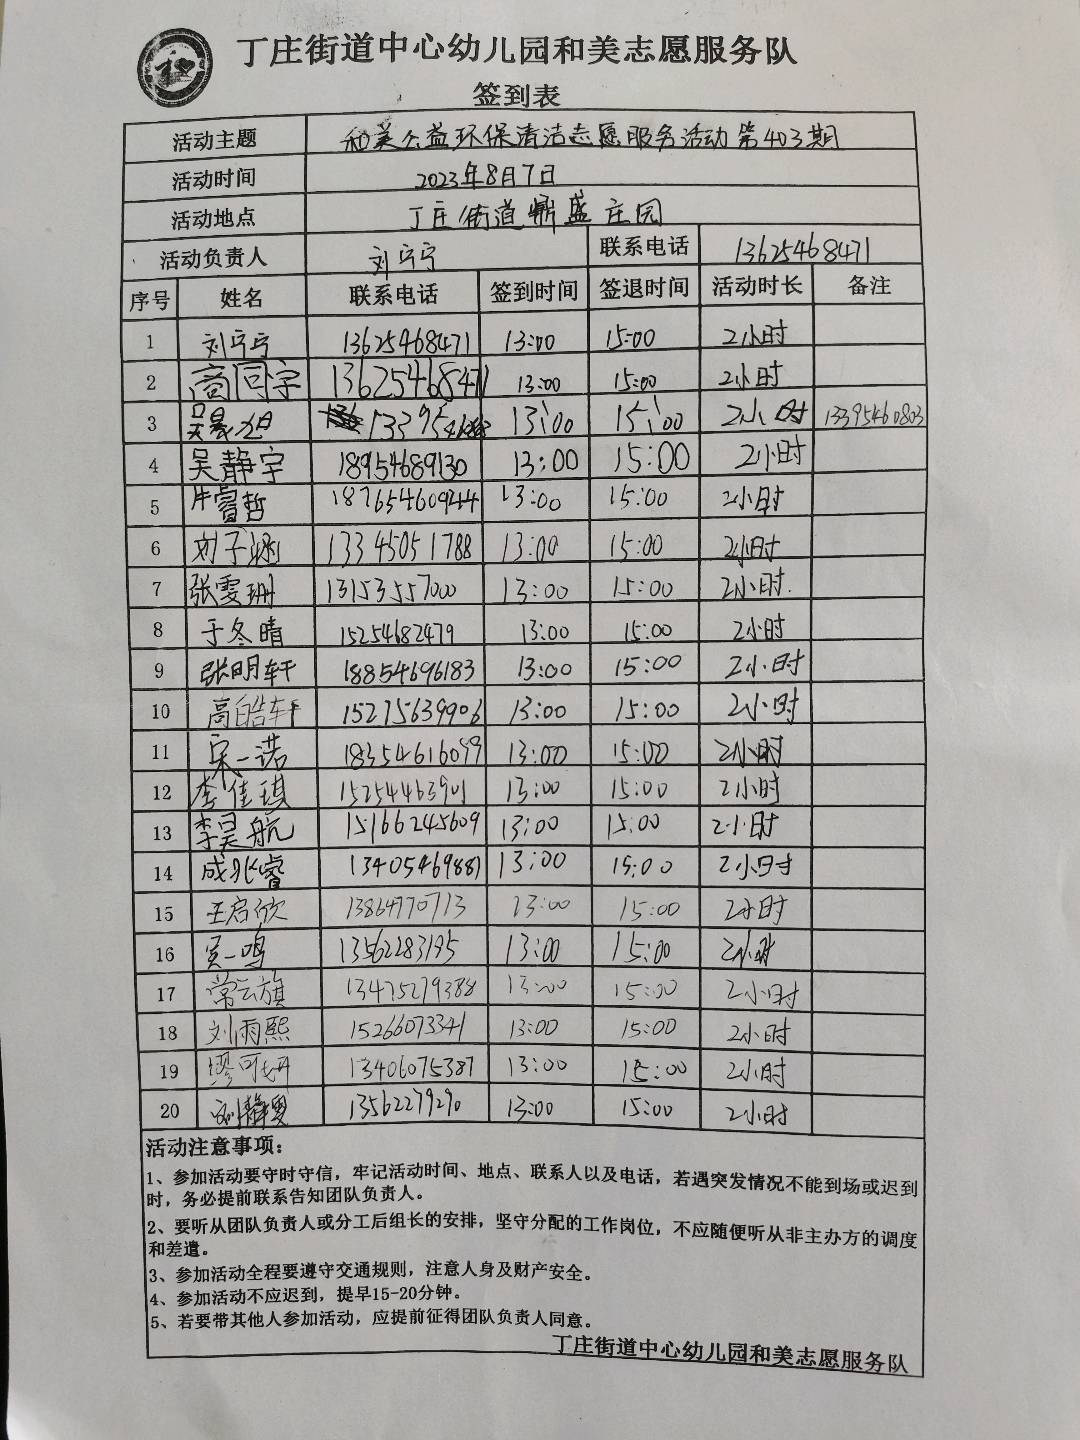 和
丁庄街道中心幼儿园和美志愿服务队
签到表
活动主题 和美公益环保清洁志愿服务活动第403期
活动时间 2023年8月7日
活动地点 丁庄街道鼎盛庄园
活动负责人 刘宁宁 联系电话 13625468471
序号 姓名 联系电话 签到时间 签退时间 活动时长 备注
1 刘宁宁 13625468471 13:00 15:00 2小时
2 高同宇 13625468471 13:00 15:00 2小时
3 吴昊旭 13:00 15:00 2小时 13395460803
4 吴静宇 18954689130 13:00 15:00 2小时
5 牛睿哲 18765460944 13:00 15:00 2小时
6 刘子涵 13345051788 13:00 15:00 2小时
7 张雯珊 13153557000 13:00 15:00 2小时
8 于冬晴 15254682479 13:00 15:00 2小时
9 张明轩 18854696183 13:00 15:00 2小时
10 高皓轩 15275639906 13:00 15:00 2小时
11 宋一诺 18354616099 13:00 15:00 2小时
12 李佳琪 15254463901 13:00 15:00 2小时
13 李昊航 15166245609 13:00 15:00 2小时
14 成兆睿 13405469887 13:00 15:00 2小时
15 王启欣 13864770713 13:00 15:00 2小时
16 一鸣 13562283195 13:00 15:00 2小时
17 常云旗 13475279388 13:00 15:00 2小时
18 刘雨熙 15266073341 13:00 15:00 2小时
19 缪可妍 13406075387 13:00 15:00 2小时
20 刘静 13562279290 13:00 15:00 2小时
活动注意事项：
1、参加活动要守时守信，牢记活动时间、地点、联系人以及电话，若遇突发情况不能到场或迟到
时，务必提前联系告知团队负责人。
2、要听从团队负责人或分工后组长的安排，坚守分配的工作岗位，不应随便听从非主办方的调度
和差遣。
3、参加活动全程要遵守交通规则，注意人身及财产安全。
4、参加活动不应迟到，提早15-20分钟。
5、若要带其他人参加活动，应提前征得团队负责人同意。
丁庄街道中心幼儿园和美志愿服务队